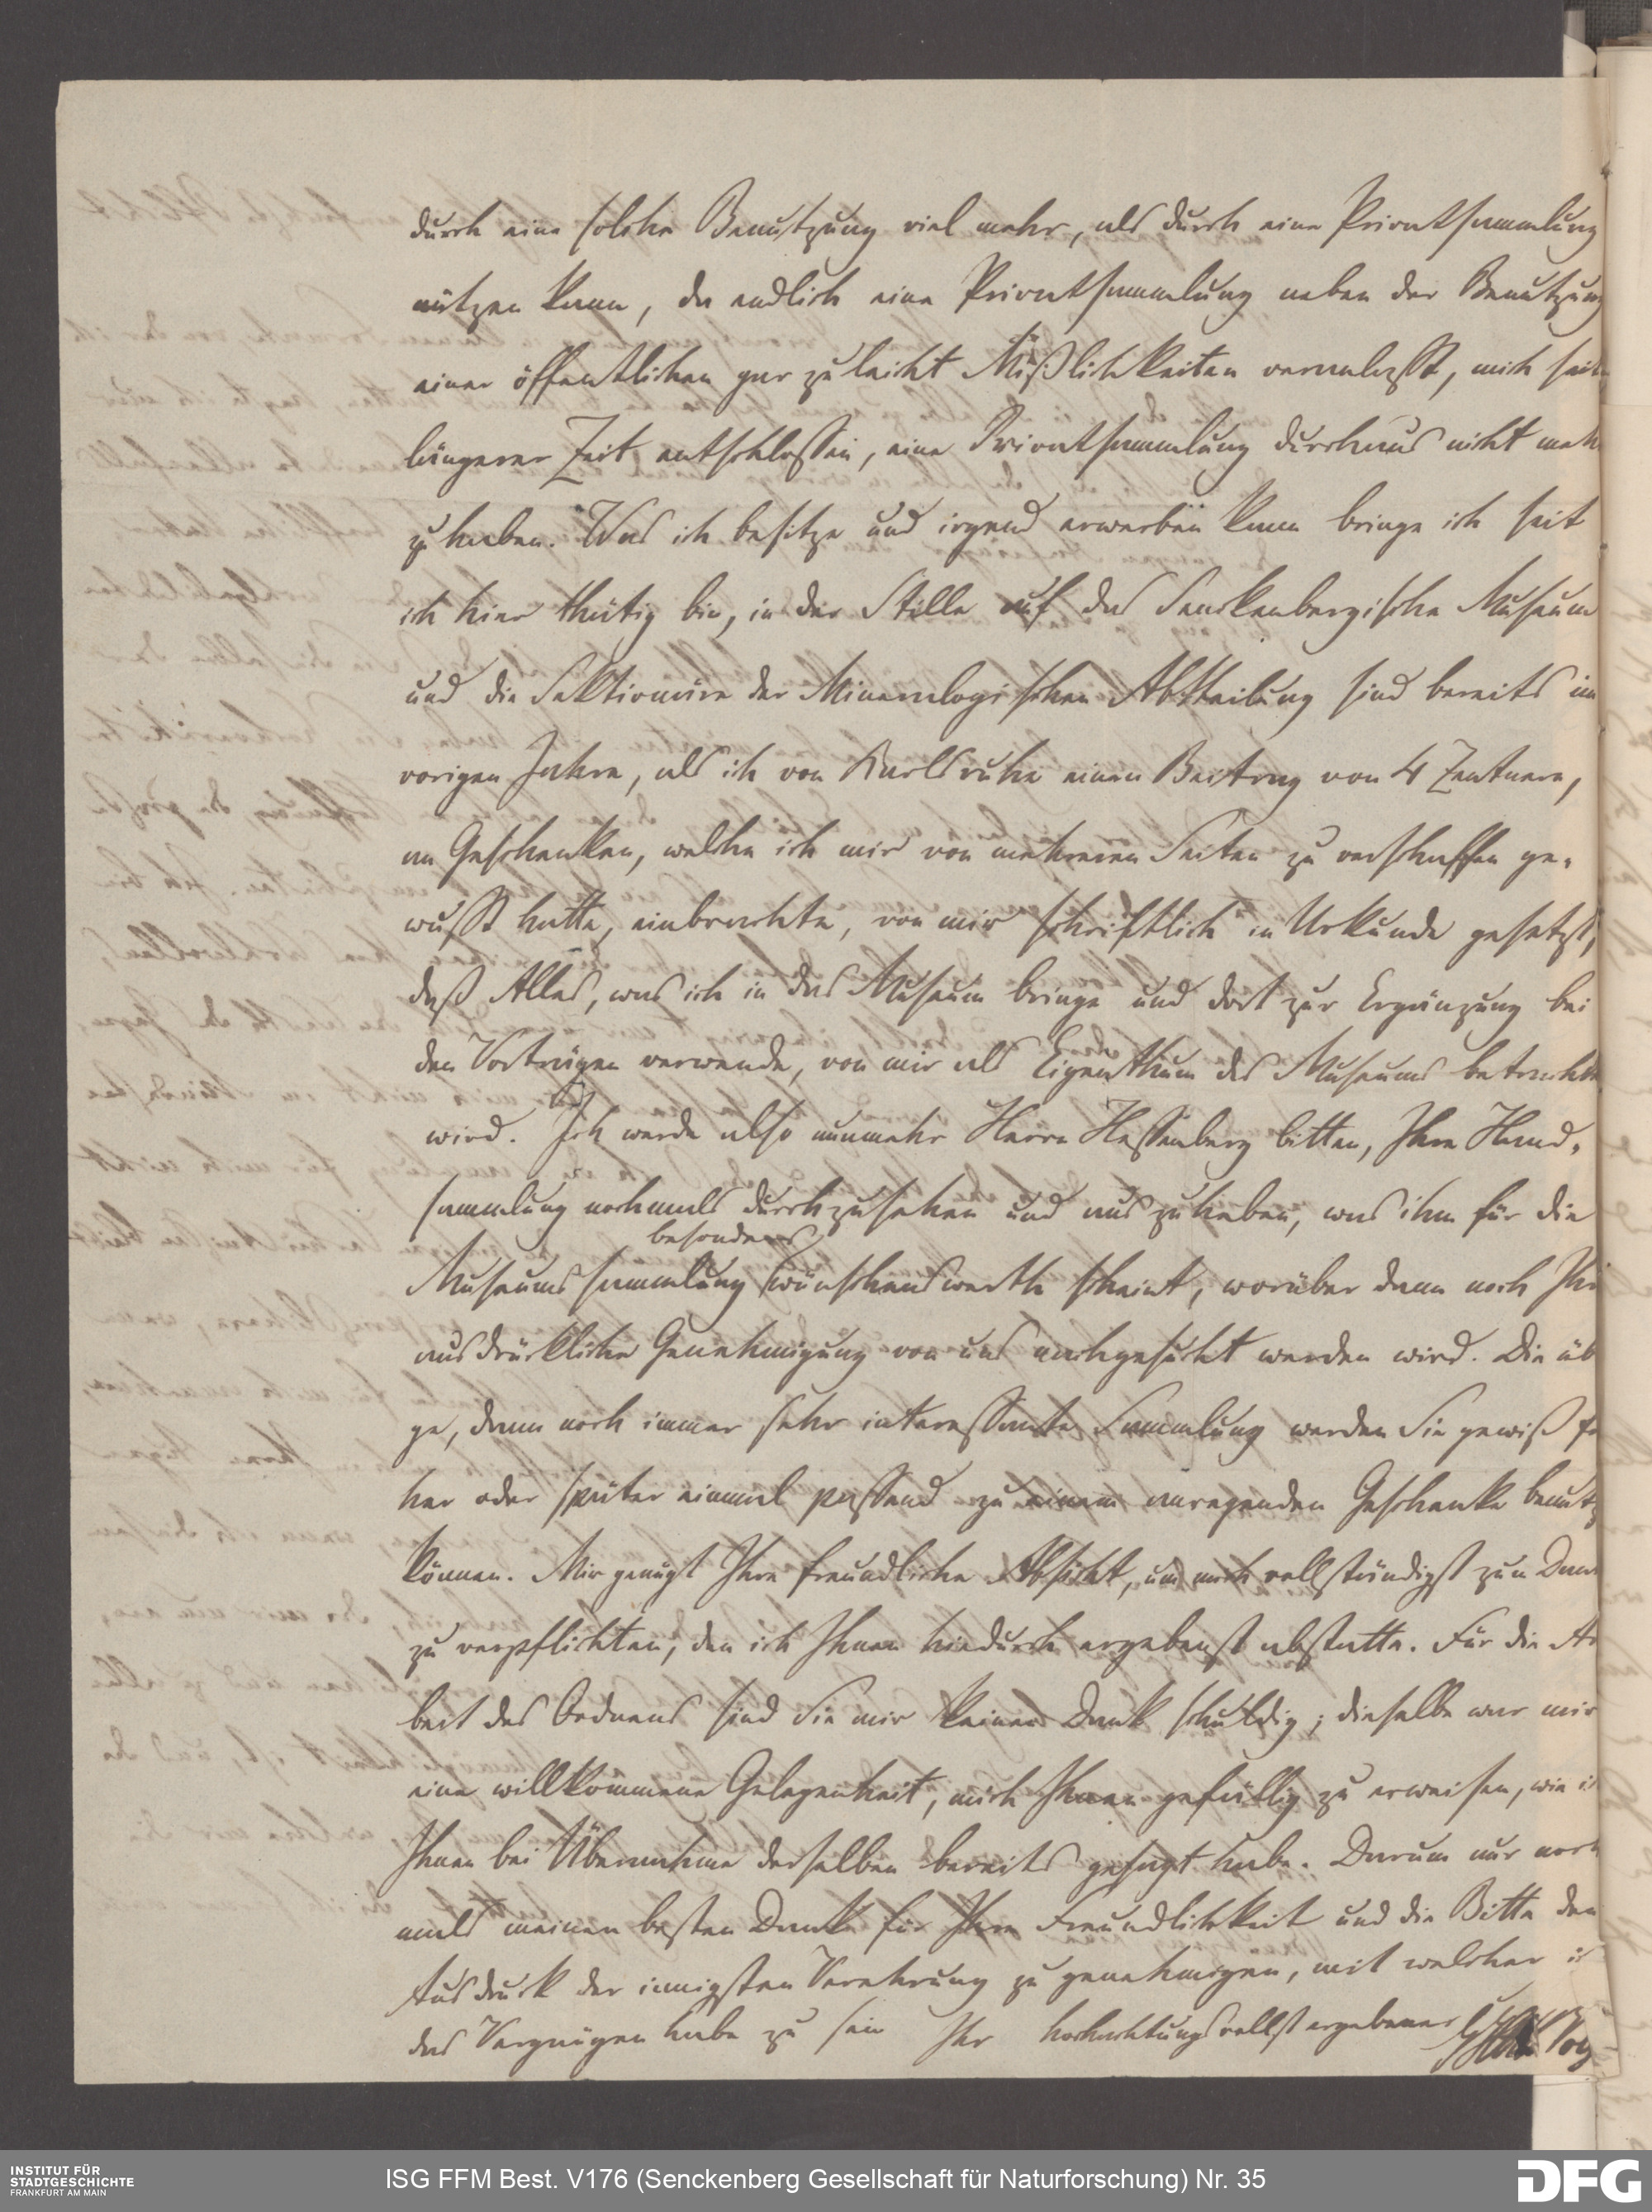 durch eine solche Benutzung viel mehr, als durch eine Privatsammlung
nützen kann, da endlich eine Privatsammlung neben der Benutzung
einer öffentlichen gar zu leicht Mißlichkeiten veranlasst, mich seit
längerer Zeit entschlossen, eine Privatsammlung durchaus nicht meh
zu haben. Was ich besitze und irgend erwerben kann bringe ich seit
ich hier thätig bin, in der Stille auf das Senckenbergische Museum
und die Sektionäre der Mineralogischen Abtheilung sind bereits im
vorigen Jahre, als ich von Karlsruhe einen Beitrag von 4 Zentnern,
an Geschenken, welche ich mir von mehreren Seiten zu verschaffen ge-
wusst hatte, einbrachte, von mir schriftlich in Urkunde gesetzt,
daß Alles, was ich in das Museum bringe und dort zur Ergänzung bei
den Vorträgen verwende, von mir als Eigenthum des Museums betracht
wird. Ich werde also nunmehr Herrn Hessenberg bitten, Ihre Hand-
sammlung nochmals durchzusehen und auszuheben, was ihm für die
besonders
Museumssammlung wünschenswerth scheint, worüber dann noch Ihr
ausdrückliche Genehmigung von uns nachgesucht werden wird. Die üb
ge, dann noch immer sehr interessante Sammlung werden Sie gewiß
her oder später einmal passend zu einem anregenden Geschenke benutz
können. Mir genügt Ihre freundliche Absicht, um mich vollständigst zum Dan
zu verpflichten, den ich Ihnen hiedurch ergebenst abstatte. Für die Ar
beit des Ordnens sind Sie mir keinen Dank schuldig; dieselbe war mir
eine willkommene Gelegenheit, mich Ihnen gefällig zu erweisen, wie i
Ihnen bei Übernahme derselben bereits gesagt habe. Darum nur noch
mals meinen besten Dank für Ihre Freundlichkeit und die Bitte den
Ausdruck der innigsten Verehrung zu genehmigen, mit welcher i
das Vergnügen habe zu sein Ihr hochachtungsvollst ergebener
INSTITUT FÜR
STADTGESCHICHTE
FRANKFURT AM MAIN
ISG FFM Best. V176 (Senckenberg Gesellschaft für Naturforschung) Nr. 35
DFG